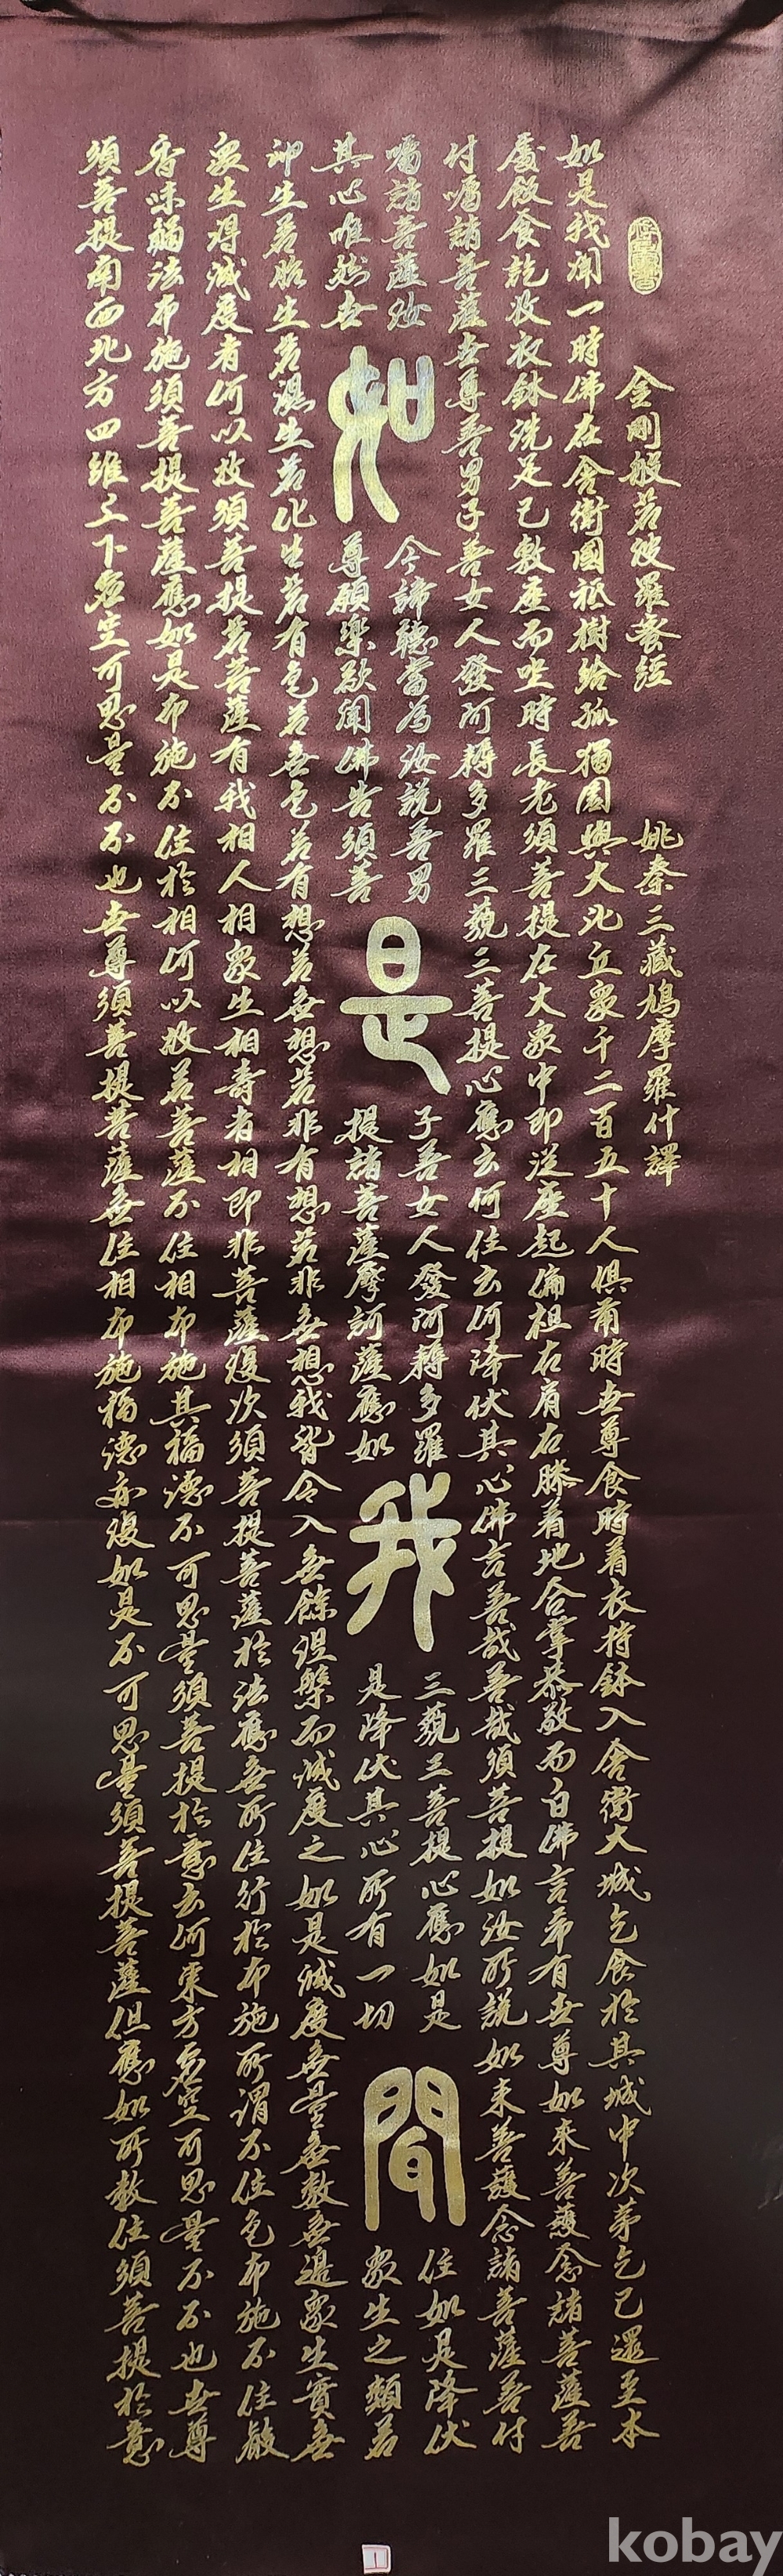 金剛般若波羅蜜經 姚秦三藏鳩摩羅什譯
如是我聞一時佛在舍衛國祇樹給孤獨園與大比丘眾千二百五十人俱爾時世尊食時着衣持鉢入舍衛大城乞食於其城中次第乞已還至本
處飯食訖收衣鉢洗足已敷座而坐時長老須菩提在大眾中即從座起偏袒右肩右膝着地合掌恭敬而白佛言希有世尊如來善護念諸菩薩善
付囑諸菩薩世尊善男子善女人發阿耨多羅三藐三菩提心應云何住云何降伏其心佛言善哉善哉須菩提如汝所說如來善護念諸菩薩善付
囑諸菩薩汝今諦聽當為汝說善男子善女人發阿耨多羅三藐三菩提心應如是住如是降伏
如是我聞
其心唯然世尊願樂欲聞佛告須菩提諸菩薩摩訶薩應如是降伏其心所有一切眾生之類若
卵生若胎生若濕生若化生若有色若無色若有想若無想若非有想若非無想我皆令入無餘涅槃而滅度之如是滅度無量無數無邊眾生實無
眾生得滅度者何以故須菩提若菩薩有我相人相眾生相壽者相即非菩薩復次須菩提菩薩於法應無所住行於布施所謂不住色布施不住聲
香味觸法布施須菩提菩薩應如是布施不住於相何以故若菩薩不住相布施其福德不可思量須菩提於意云何東方虛空可思量不不也世尊
須菩提南西北方四維上下虛空可思量不不也世尊須菩提菩薩無住相布施福德亦復如是不可思量須菩提菩薩但應如所教住須菩提於意
1
kobay